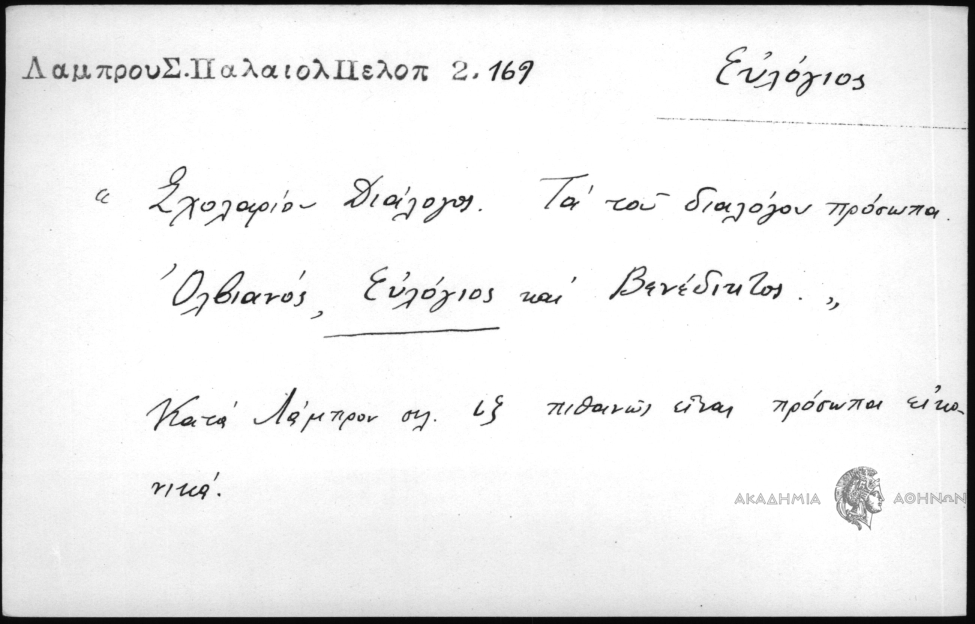 ΛαμπρουΣ.ΠαλαιολΠελοπ 2.169
Εὐλόγιος
“ Σχολαρίου Διάλογος. Τά τοῦ διαλόγου πρόσωπα.
Ὀλβιανός, Εὐλόγιος καί Βενέδικτος. „
Κατά Λάμπρον σελ. ιξ πιθανῶς εἶναι πρόσωπα εἰκο-
νικά.
ΑΚΑΔΗΜΙΑ ΑΘΗΝΩΝ